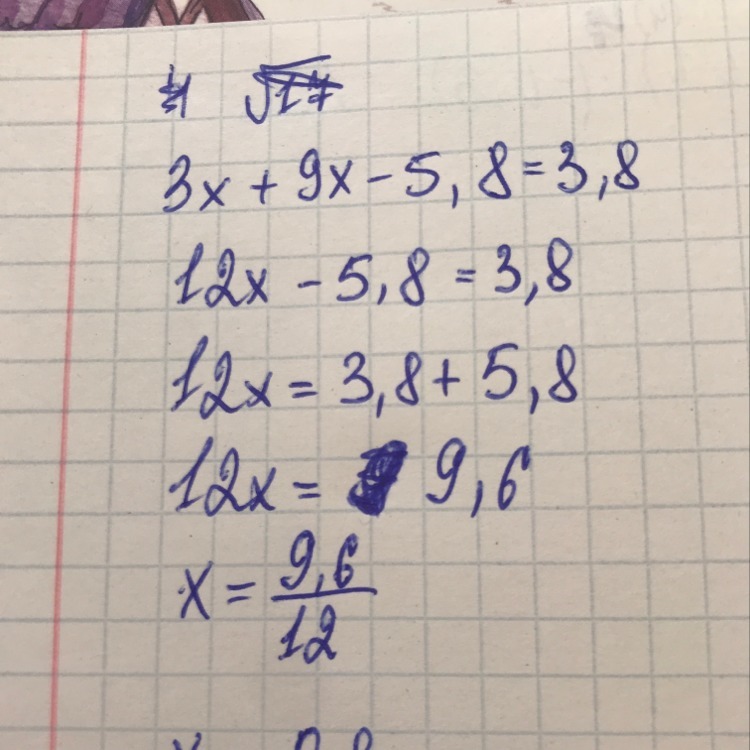 √17
3x + 9x - 5,8 = 3,8
12x - 5,8 = 3,8
12x = 3,8 + 5,8
12x = 9,6
x = 9,6/12